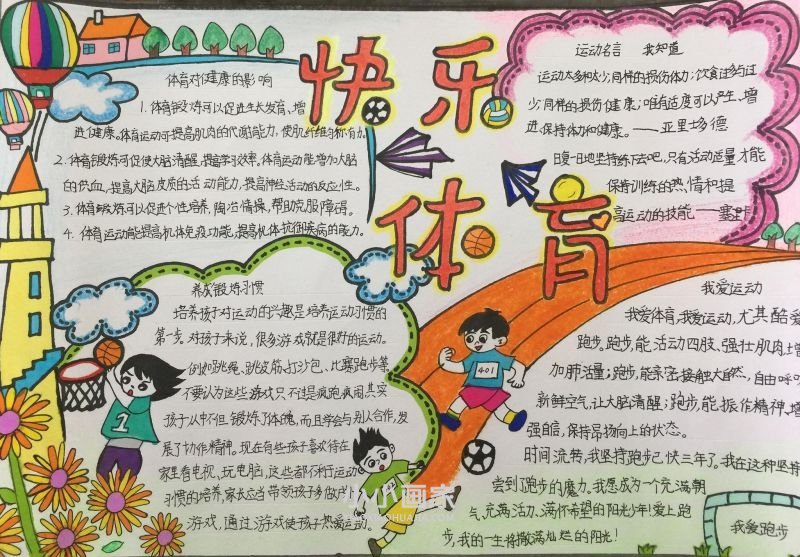 快乐
体育
体育对健康的影响
1. 体育锻炼可以促进生长发育、增
进健康。体育运动可提高肌肉的代谢能力，使肌纤维匀称有力。
2. 体育锻炼可促使大脑清醒，提高学习效率。体育运动能增加大脑
的供血，提高大脑皮质的活动能力，提高神经活动的反应性。
3. 体育锻炼可以促进个性培养，陶冶情操，帮助克服障碍。
4. 体育运动能提高机体免疫功能，提高机体抗御疾病的能力。
运动名言 我知道
运动太多和太少，同样的损伤体力；饮食过多与过
少，同样的损伤健康；唯有适度可以产生、增
进、保持体力和健康。——亚里士多德
日复一日地坚持练下去吧，只有活动适量才能
保持训练的热情和提
高运动的技能——塞
养成锻炼习惯
培养孩子对运动的兴趣是培养运动习惯的
第一步，对孩子来说，很多游戏就是很好的运动。
例如跳绳、跳皮筋、打沙包、比赛跑步等，
不要认为这些游戏只不过是疯跑疯闹，其实
孩子从中不但锻炼了体魄，而且学会与别人合作，发
展了协作精神。现在有些孩子喜欢待在
家里看电视、玩电脑，这些都不利于运动
习惯的培养，家长应当带领孩子多做户
游戏，通过游戏使孩子热爱运动。
我爱运动
我爱体育，我爱运动，尤其酷爱
跑步。跑步能活动四肢、强壮肌肉、增
加肺活量；跑步，能亲密接触大自然，自由呼
新鲜空气，让大脑清醒；跑步，能振作精神、增
强自信，保持昂扬向上的状态。
时间流转，我坚持跑步已快三年了。我在这种坚持
尝到了跑步的魔力。我愿成为一个充满朝
气、充满活力、满怀希望的阳光少年！爱上跑
步，我的一生将撒满灿烂的阳光！
我爱跑步
1
401
小小画家